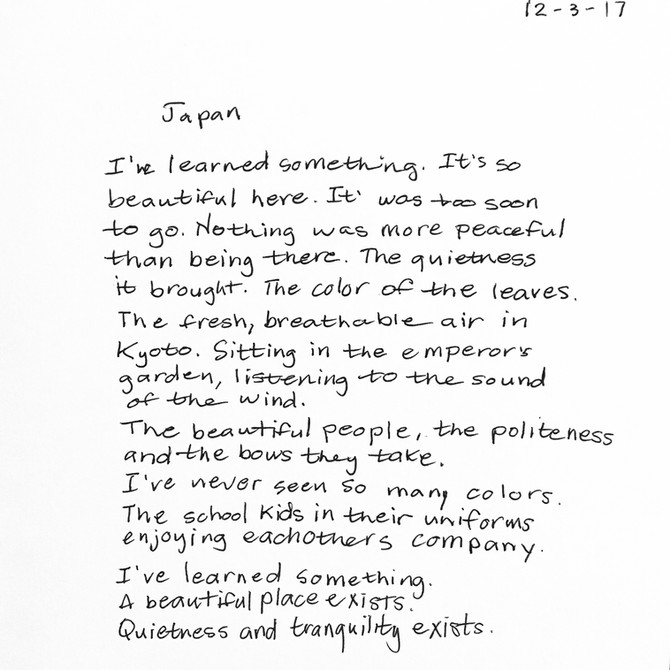 12-3-17
Japan
I've learned something. It's so
beautiful here. It' was too soon
to go. Nothing was more peaceful
than being there. The quietness
it brought. The color of the leaves.
The fresh, breathable air in
Kyoto. Sitting in the emperor's
garden, listening to the sound
of the wind.
The beautiful people, the politeness
and the bows they take.
I've never seen so many colors.
The school kids in their uniforms
enjoying eachothers company.
I've learned something.
A beautiful place exists.
Quietness and tranquility exists.